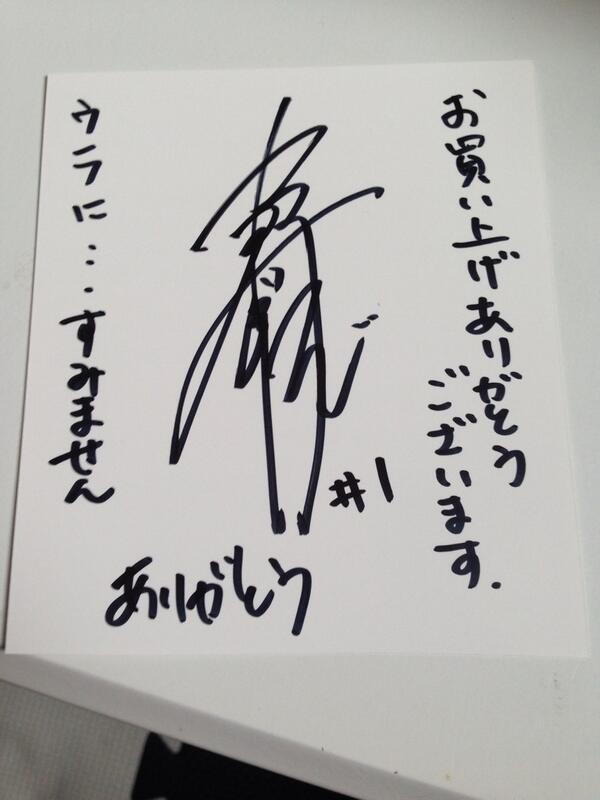 お買い上げありがとう
ございます.
#1
ありがとう
ウラに...すみません